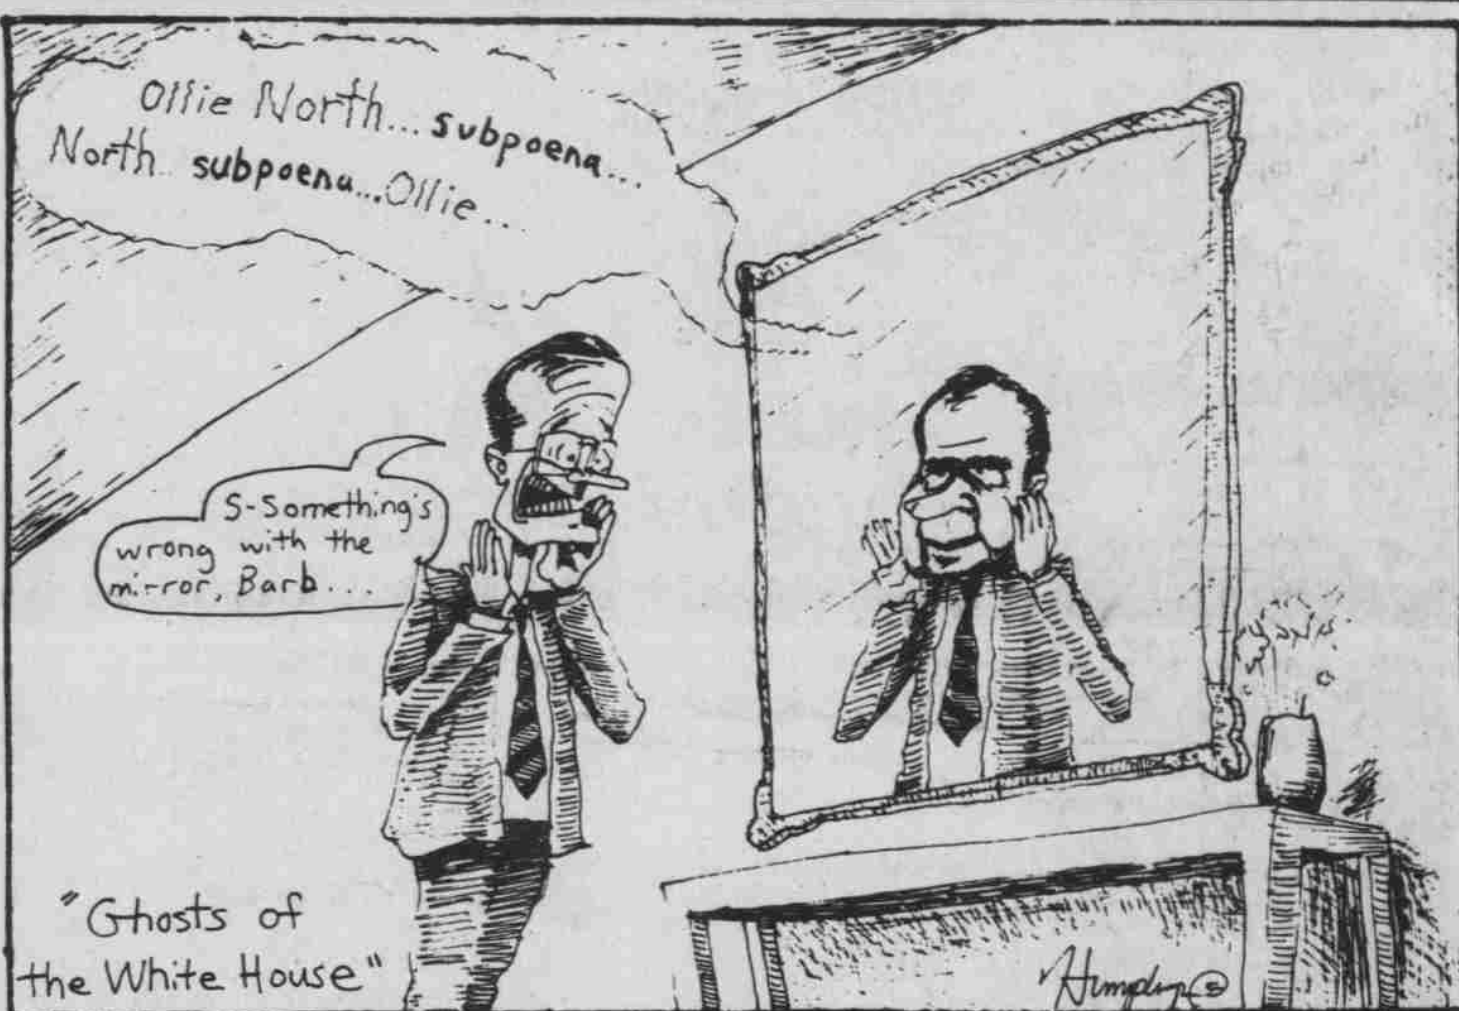 Ollie North... subpoena...
North.. subpoena...Ollie...
S-Something's
wrong with the
mirror, Barb...
"Ghosts of
the White House"